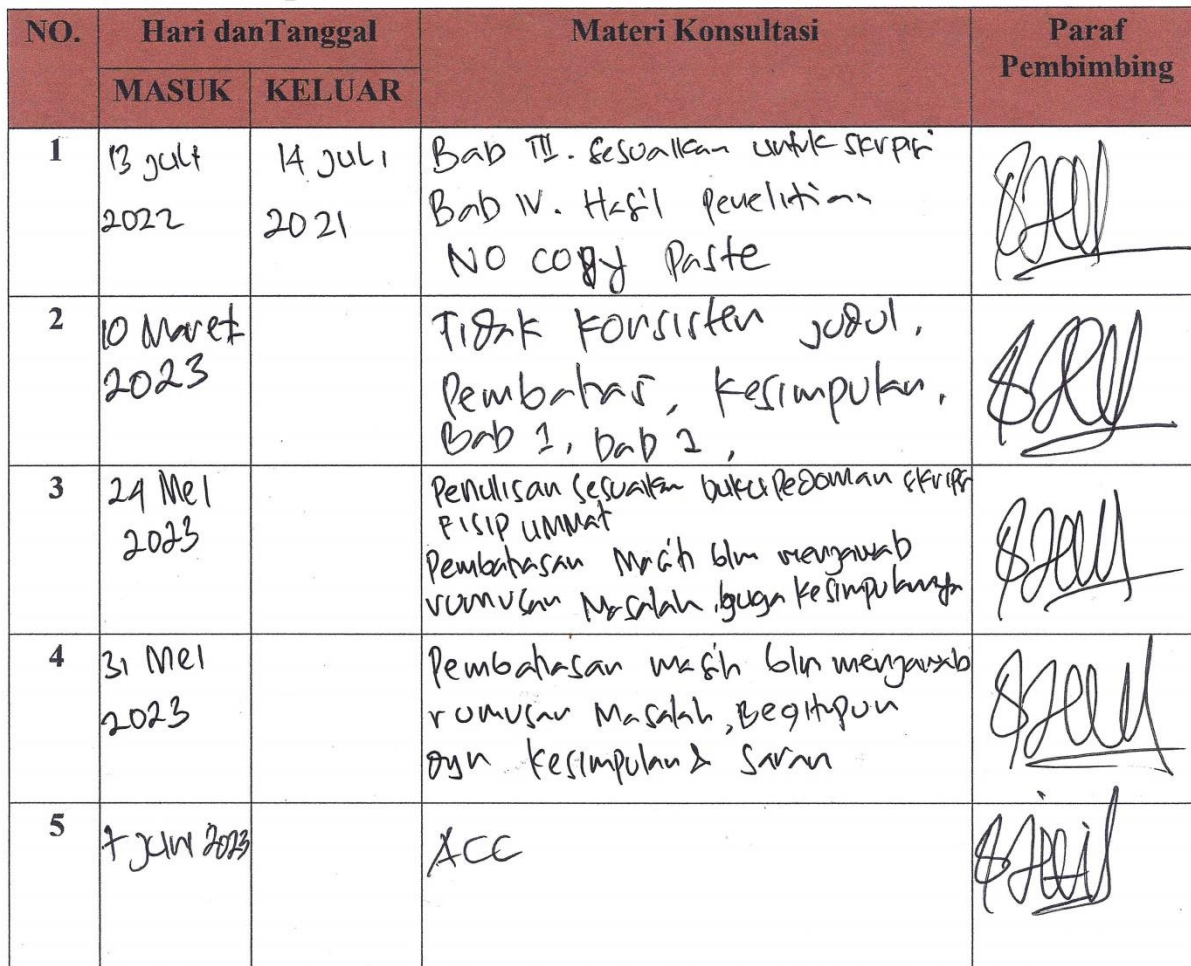 NO. Hari danTanggal Materi Konsultasi Paraf
Pembimbing
MASUK KELUAR
1 13 Juli 14 Juli Bab III. Sesuaikan untuk skripsi
2022 2021 Bab IV. Hasil Penelitian
NO copy Paste
2 10 Maret Tidak Konsisten judul,
2023 Pembahas, Kesimpulan,
Bab 1, bab 2,
3 24 Mei Penulisan sesuaikan buku Pedoman skripsi
2023 FISIP UMMAT
Pembahasan Masih blm menjawab
rumusan Masalah, juga kesimpulannya
4 31 Mei Pembahasan masih blm menjawab
2023 rumusan Masalah, Begitupun
dgn Kesimpulan & Saran
5 7 Juni 2023 ACC